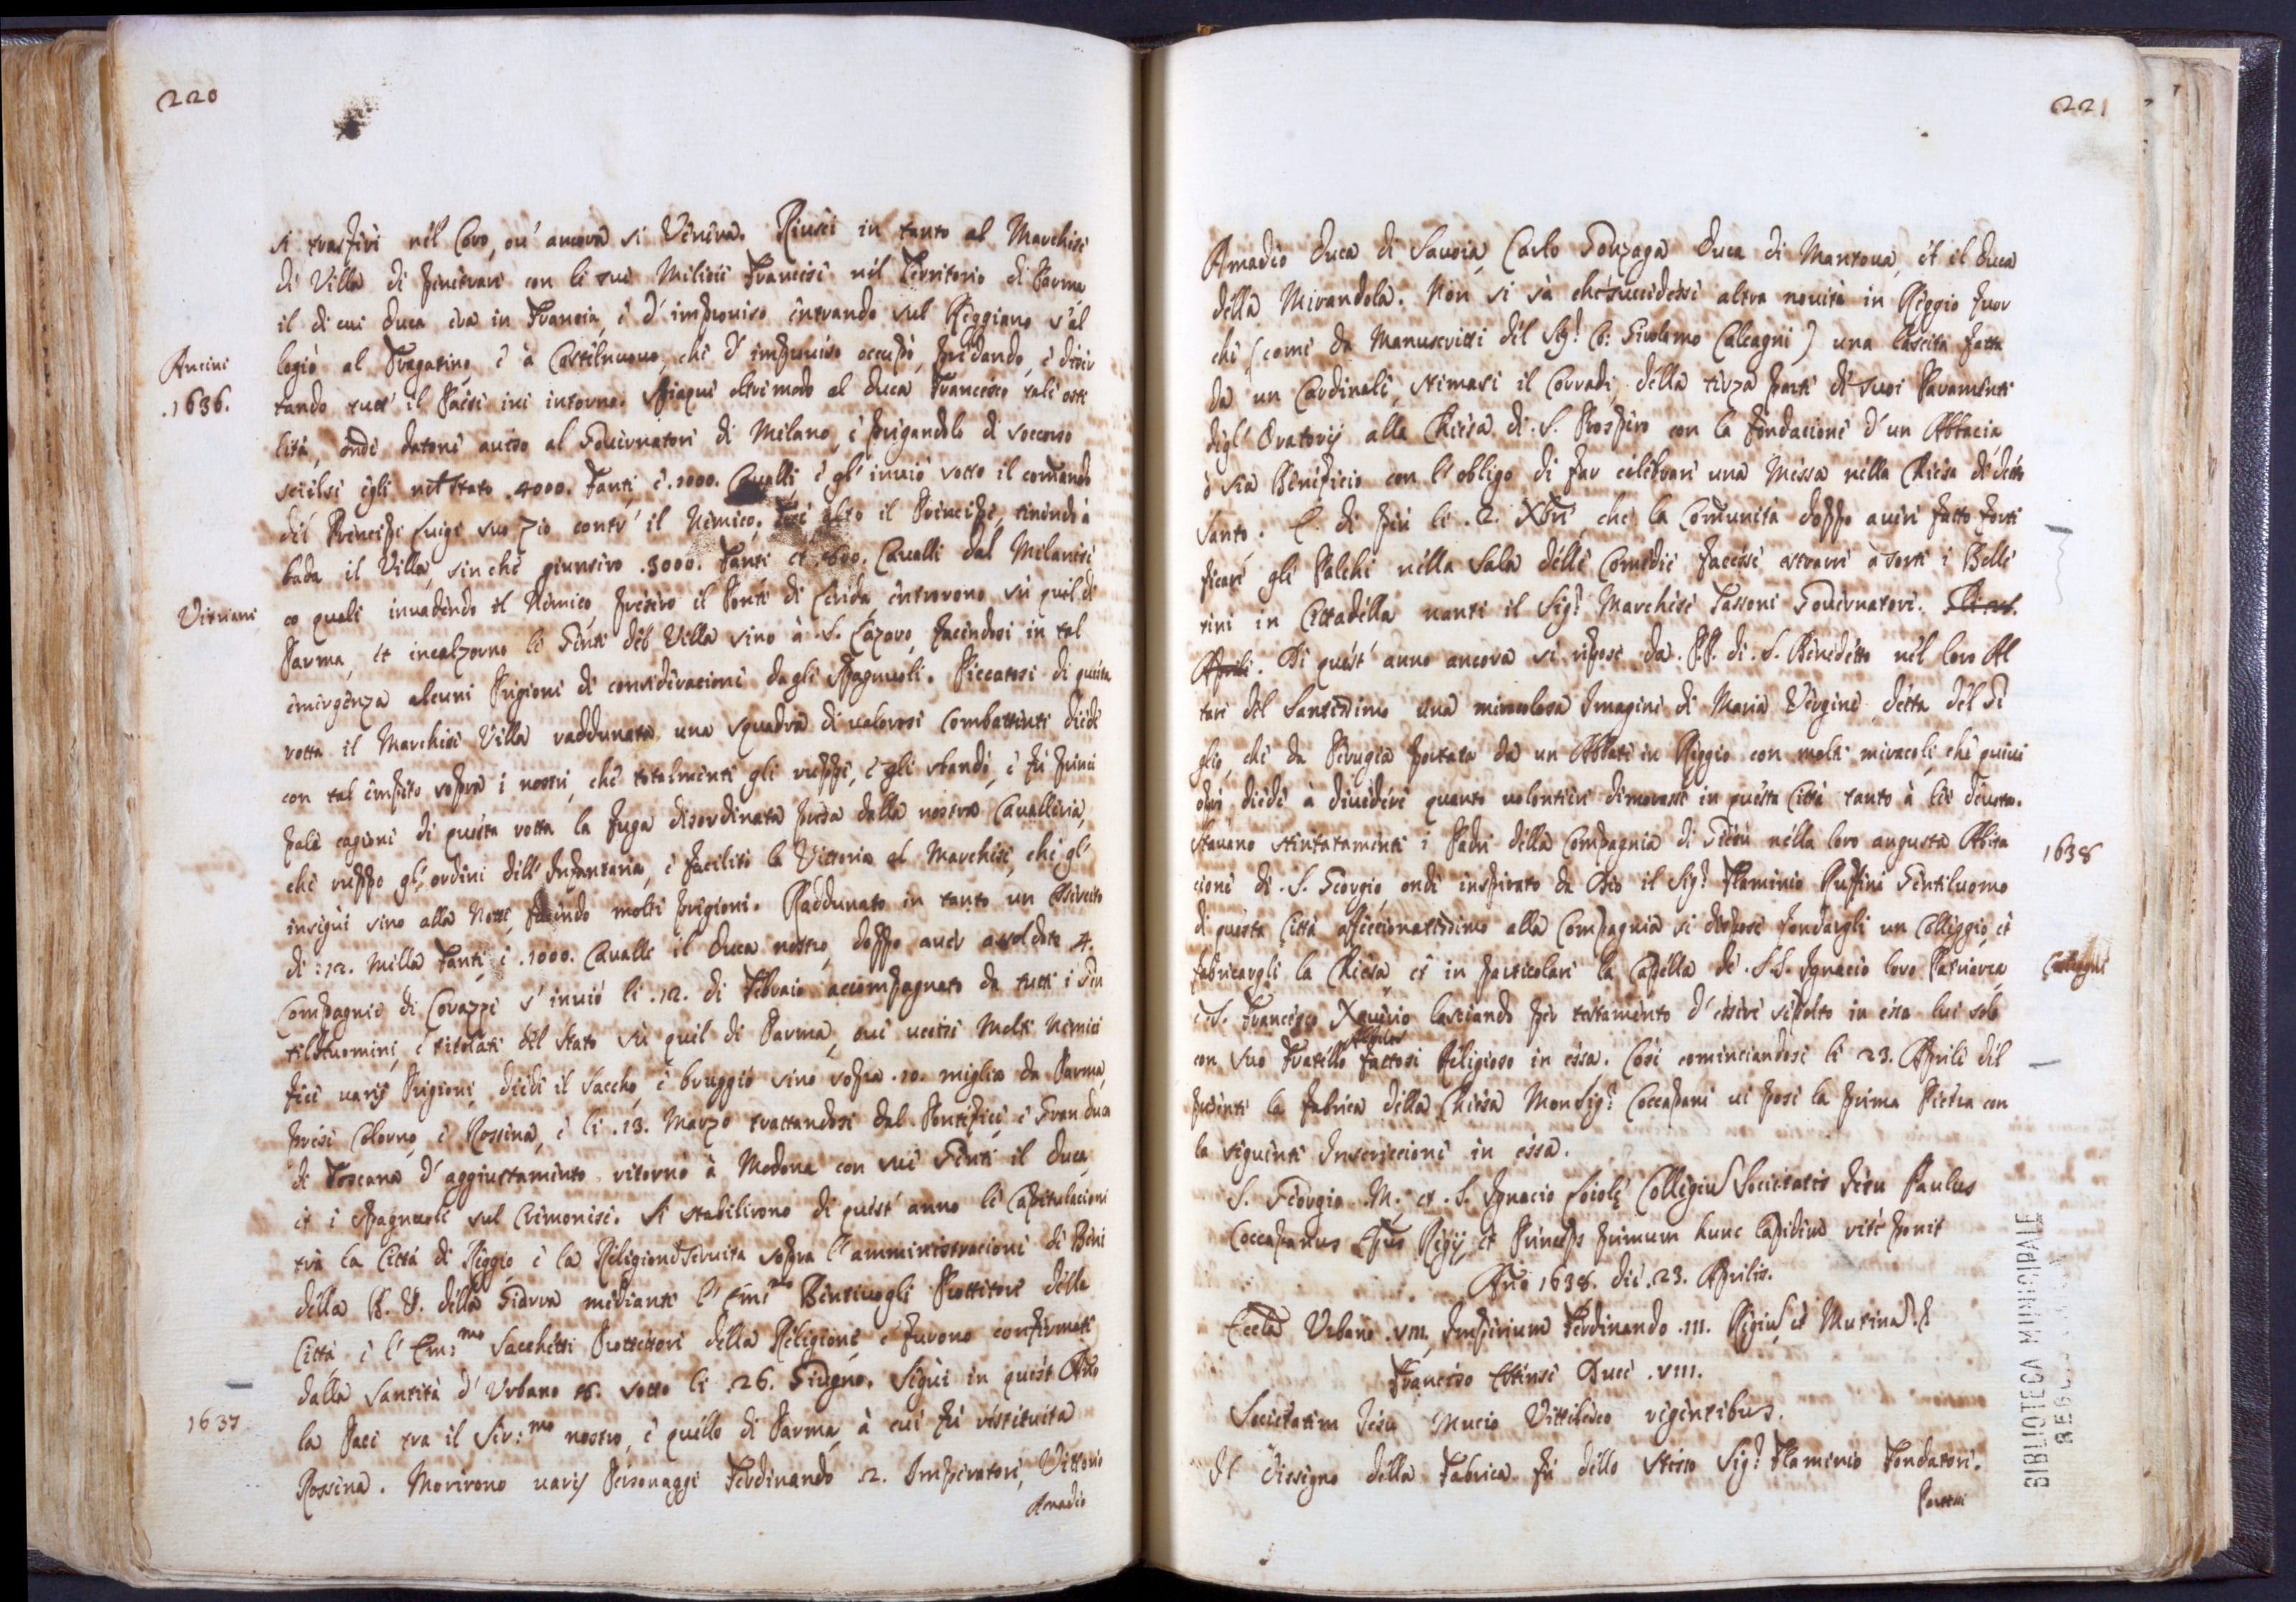 220
si trasferì nel Coro, ou' ancora si Venera. Riuscì in tanto al Marchese
di Villa di penetrare con le sue Milicie Francesi nel Territorio di Parma
il di cui Duca era in Francia, è d' improuiso entrando sul Reggiano s' al
Ancini
.1636.
logiò al Fregatino, è à Castelnuouo, che d' improuiso occupò, predando, è diser
tando tutt' il Paese iui intorno. Spiaque oltremodo al Duca Francesco tale osti
lità, onde datone auiso al Gouernatore di Milano, è pregandolo di soccorso
scielse egli nel Stato .4000. Fanti, è .1000. Caualli, è gl' inuiò sotto il comando
del Principe Luigi suo Zio contr' il Nemico. il Principe, tenendo à
bada il Villa, sin che giunsero .3000. Fanti et Caualli dal Milanese
Vernani
co quali inuadendo il Nemico presero il Ponte di Lenza, entrorono sù quel di
Parma, et incalzorno le Genti del Villa sino à S. Lazaro, facendosi in tal
emergenza alcuni Prigioni di consideracione dagli Spagnuoli. Piccatosi di questa
rotta il Marchese Villa raddunata una squadra di ualorosi Combattenti diede
con tal impeto sopra i nostri, che totalmente gli ruppe, è gli sbandò, è fù princi
pale cagione di questa rotta la fuga disordinata presa dalla nostra Cavalleria,
che ruppe gl' ordini dell' Infanteria, è facilitò la Vittoria al Marchese, che gl'
inseguì sino alla Notte, facendo molti prigioni. Raddunato in tanto un Essercito
di .12. Milla Fanti, è .1000. Caualli il Duca nostro, doppo auer assoldate 4.
Compagnie di Corazze s' inuiò li .12. di Febraio accompagnato da tutti i Gen
tilhuomini, è titolati del Stato sù quel di Parma, oue uccise molti Nemici
fece uarij Prigioni, diede il Saccho, è bruggiò sino sopra .10. miglia da Parma,
prese Colorno, è Rossena, è li .13. Marzo trattandosi dal Pontefice, è Gran Duca
di Toscana d' aggiustamento ritornò à Modona con sue Genti il Duca,
et i Spagnuoli sul Cremonese. Si stabilirono di quest' anno le Capitulacioni
trà la Città di Reggio, è la Religione Seruita sopra l' amministracione di Beni
della B. V. della Giarra mediante l' Em.mo Bentiuogli Protettore della
Città, è l' Em:mo Sacchetti Protettore della Religione, è furono confirmate
dalla Santità d' Urbano 8. sotto li .26. Giugno. Seguì in quest' Año
1637
la Pace tra il Ser:mo nostro, è quello di Parma, à cui fù restituita
Rossena. Morirono uarij Personaggi Ferdinando .2. Imperatore, Vittorio
Amadeo
221
Amadeo Duca di Sauoia, Carlo Gonzaga Duca di Mantoua, et il Duca
della Mirandola. Non si sà che succedesse altra nouità in Reggio fuor
che (come da Manuscritti del Sig.r Co: Girolamo Calcagni) una lascita fatta
da un Cardinale, stimasi il Corradi, della terza parte di suoi Paramenti
degl' Oratorij alla Chiesa di S. Prospero con la fondacione d' un Abbacia
ò sia Beneficio con l' obligo di far celebrare una Messa nella Chiesa di detto
Santo. È di più li .2. Xbre, che la Comunità doppo auer fatto forti
ficare gli Palchi nella Sala delle Comedie facesse estrarre à sorte i Bolle
tini in Cittadella nanti il Sig.r Marchese Tassoni Gouernatore.
Aprile. Di quest' anno ancora si ripose da PP. di S. Benedetto nel loro Al
tare del Santissimo una miracolosa Imagine di Maria Vergine detta del Gi
glio, che da Perugia portata da un Abbate in Reggio con molti miracoli, che quiui
oprò diede à diuedere quanto uolentieri dimorasse in questa Città tanto à lei deuota.
1638
Stauano stentatamente i Padri della Compagnia di Giesù nella loro angusta Abita
cione di S. Georgio, onde inspirato da Dio il Sig.r Flaminio Ruffini Gentiluomo
di questa Città affeccionatissimo alla Compagnia si dispose fondargli un Colleggio, et
Calcagni
fabricargli la Chiesa, et in particolare la Capella di S.S. Ignacio loro Patriarca,
è S. Francesco Xauerio lasciando per testamento d' essere sepolto in essa lui solo
con suo Fratello fattosi Religioso in essa. Così cominciandosi li 23. Aprile del
presente la fabrica della Chiesa Monsig.r Coccapani ui pose la prima Pietra con
la seguente Inscriccione in essa.
S. Georgio M. et S. Ignacio Loiolę Collegiu Societatis Jesu Paulus
Coccapanus Epus Regij, et Princeps primum hunc lapidem ritè ponit
Año 1638. die .23. Aprilis.
Eccla Urbano .VIII. Imperium Ferdinando .III. Regiu, et Mutina
Francisco Estensi Duce .VIII.
Societatem Jesu Mucio Vittelesco regentibus.
Il dissegno della Fabrica fù dello stesso Sig.r Flaminio Fondatore.
BIBLIOTECA MUNICIPALE